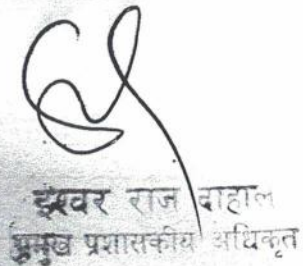 ईश्वर राज दाहाल
प्रमुख प्रशासकीय अधिकृत